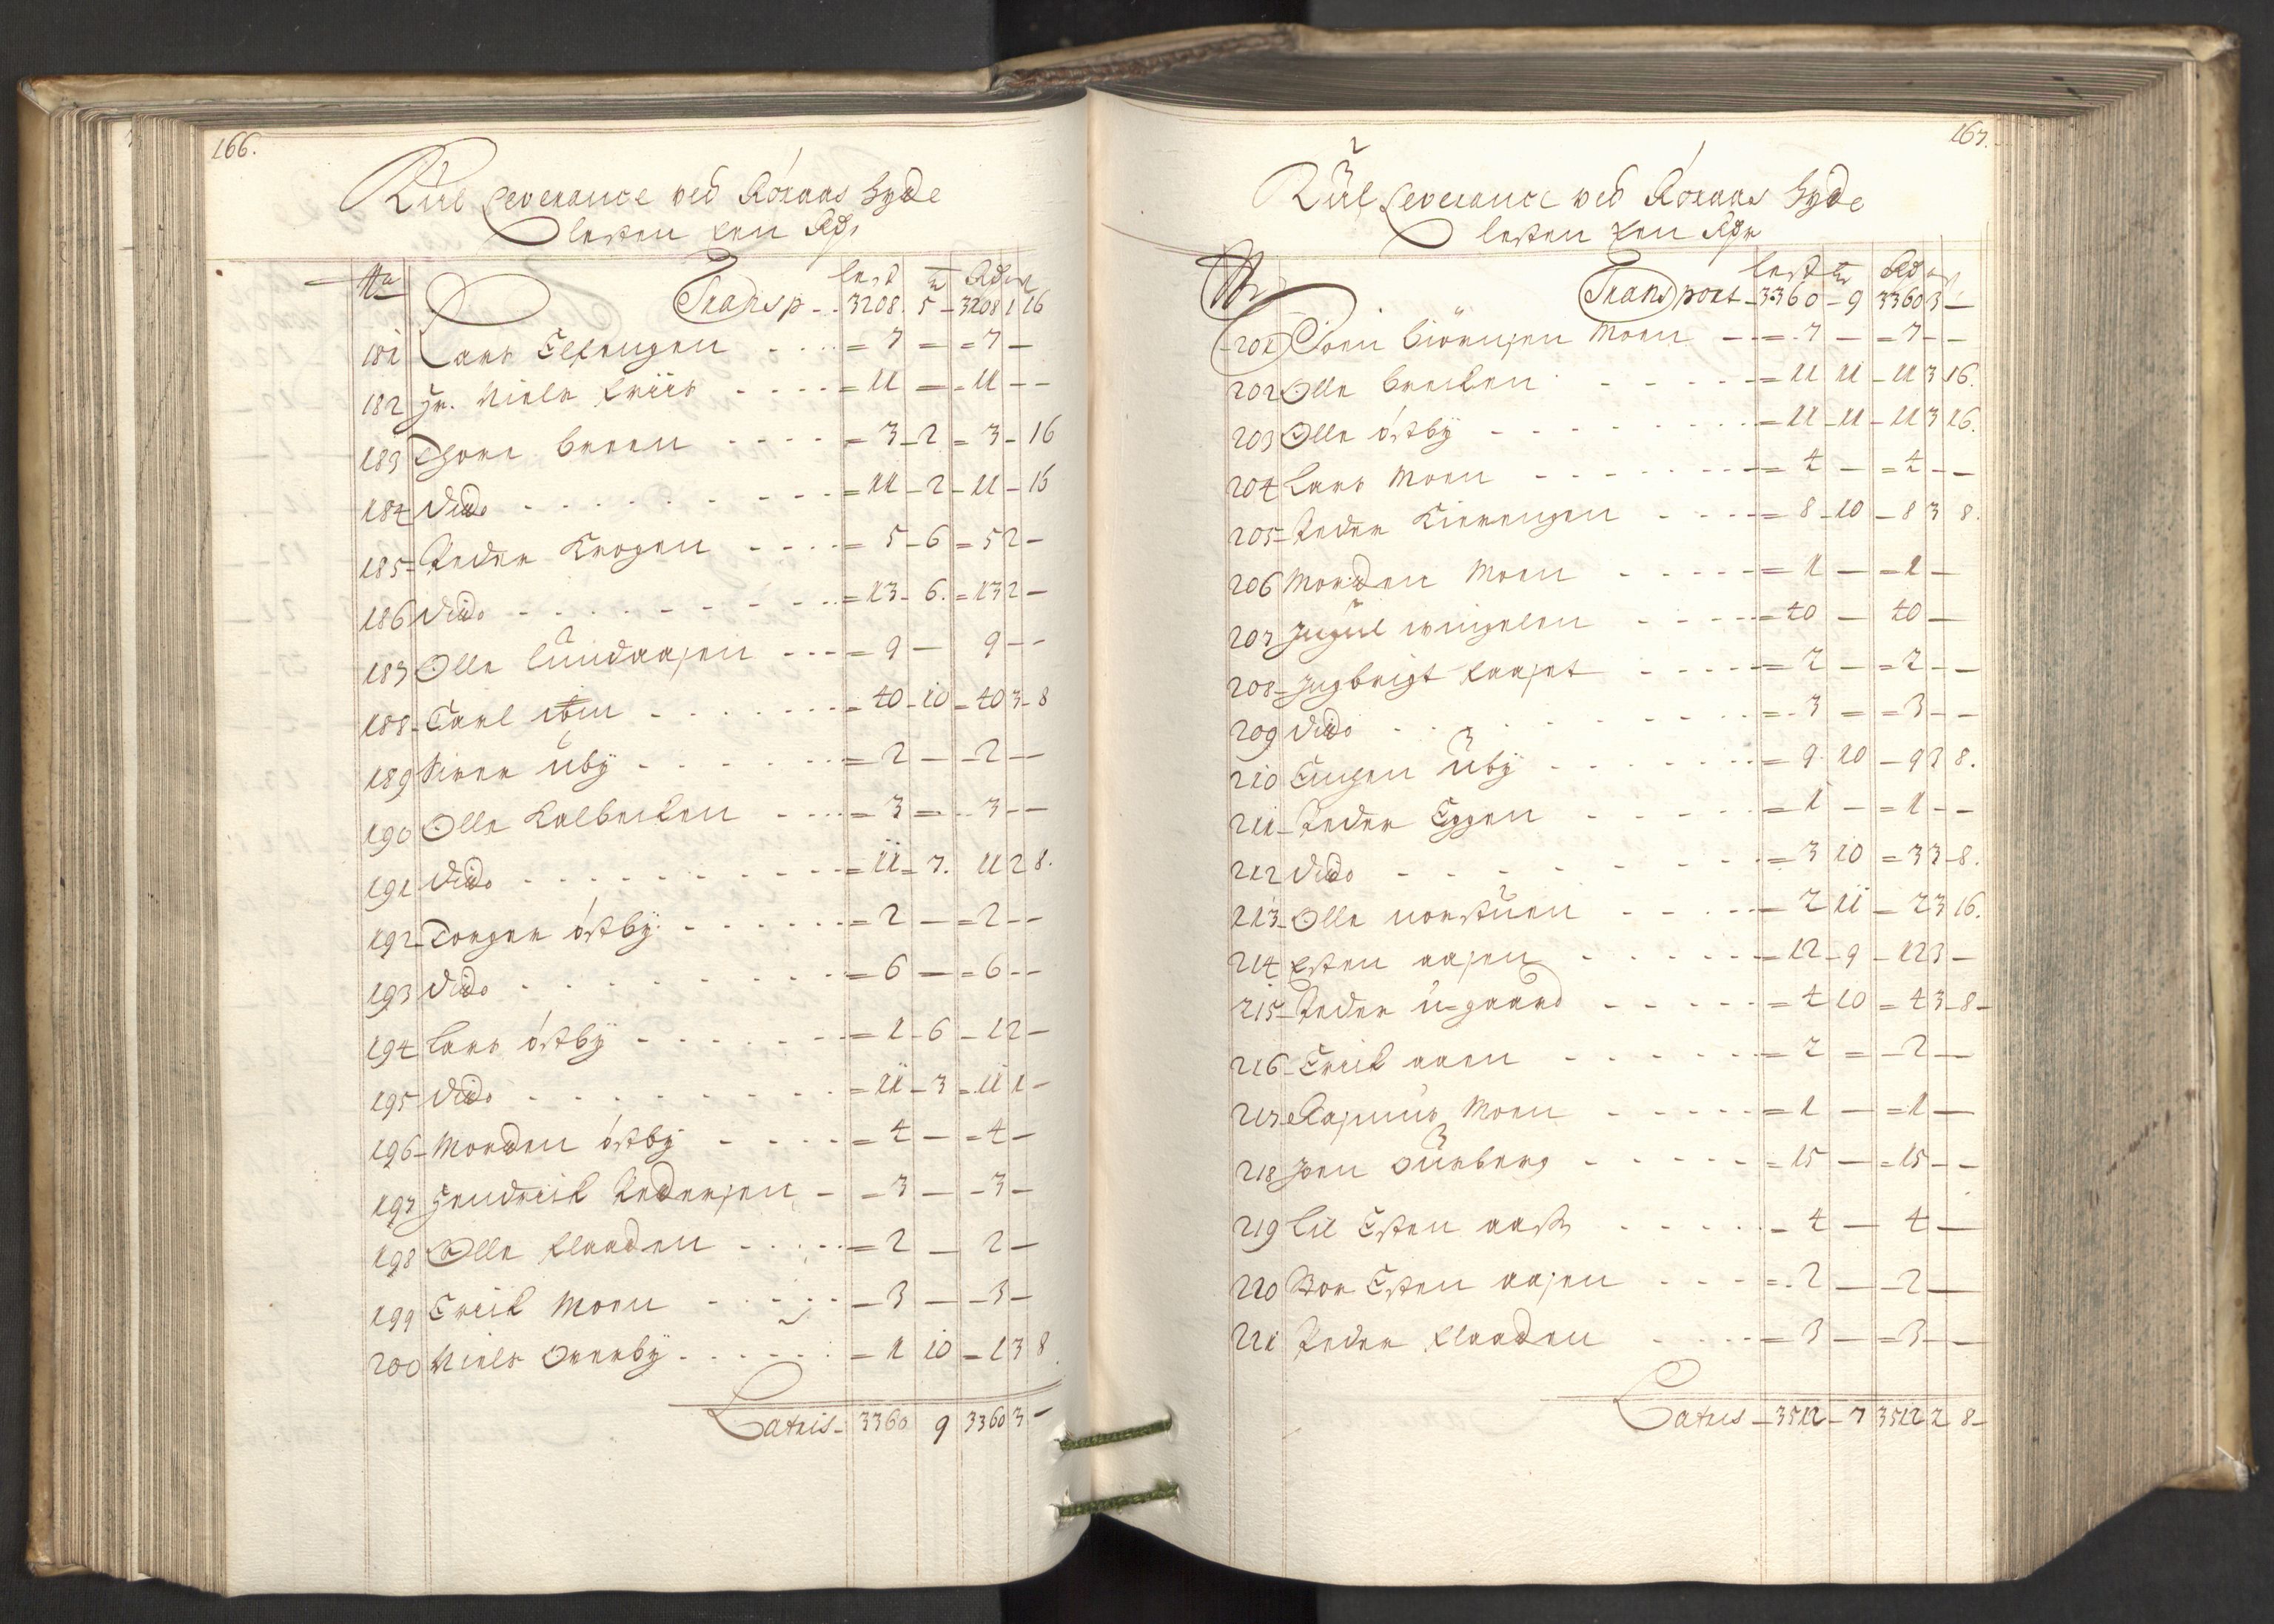 166.
Kul Leverance ved Röraas hytte
lesten een Rdr
No Transp - - 3208. 5 - 3208 1 16
181 Lars Elfengen - - - = 7 - = 7 -
182 Hr. Niels Friis - - - - = 11 - = 11 - -
183 Thore Breen - - - - = 3 - 2 = 3 - 16
184 Dido - - - - - - - - = 11 - 2 - 11 - 16
185 - Peder Krogen - - - - = 5 - 6 = 5 2 -
186 Dido - - - - - - - - = 13 - 6. = 13 2 -
187 Olle Lundaasen - - - = 9 - 9 - -
188 - Carl - - - - - - = 40 - 10 - 40 3 - 8
189 Siver Uby - - - - - - = 2 - - 2 - -
190 Olle Kolbecken - - - = 3 = - 3 - -
191 Dido - - - - - - - - = 11 = 7. 11 2 8.
192 - Torger östby - - - - - = 2 - = 2 - -
193 Dido - - - - - - - = 6 - = 6 - -
194 Lars östby - - - - - - = 1 - 6 - 1 2 -
195 Dido - - - - - - - - = 11 - 3 = 11 1 -
196 - Morten östby - - - - = 4 - = 4 -
197 Hendrick Pedersen - - = 3 - - 3 -
198 Olle Floaden - - - - = 2 - 2 -
199 Erick Moen - - - - - 3 - - 3 -
200 Niels Ourerby - - - - - - = 1 10 = 1 3 8
Latus - 3360 9 3360 3 -
167.
Kul Leverance ved Röraas hytte
lesten een Rdr
No lest tr Rdr
Transport - 3360 - 9 3360 3 -
- 201 Joen Biörnsen Moen - - = 7 - = 7 - -
202 Olle Brecken - - - - - = 11 11 - 11 3 16.
203 Olle östby - - - - - - - = 11 - 11 - 11 3 16.
204 Lars Moen - - - - - - = 4 - = 4 - -
205 - Peder Kierengen - - - - = 8 - 10 - 8 3 8.
206 Morten Moen - - - - - = 1 - = 1 -
207 Jngul wingelen - - - - = 40 - 40 -
208 - Jngbrigt Kaaset - - - - = 2 - = 2 - -
209 Dido - - - - - - - = 3 = = 3 - -
210 Uby - - - - - - = 9. 10 - 9 3 8.
211 - Peder Eggen - - - - - = 1 - = 1 - -
212 Dido - - - - - - - = 3 10 = 3 3 - 8.
213 - Olle norstuen - - - - - = 2 11 = 2 3 16.
214 Esten aasen - - - - - - = 12 - 9 - 12 3 -
215 - Peder Ü=gaard - - - - - = 4 10 = 4 3 - 8 -
216 - Erick aaen - - - - - - = 2 = - 2 -
217 Rasmus Moen - - - - - = 1 - = 1 -
218 Joen Durberg - - - - - = 15 - = 15 - -
219 Lil Esten aas - - - - - - 4 - 4 -
220 Stor Esten aasen - - - - = 2 - - 2 -
221 Peder Floaden - - - - = 3 - = 3 - -
Latus - 3512 - 7 3512 2 8 -